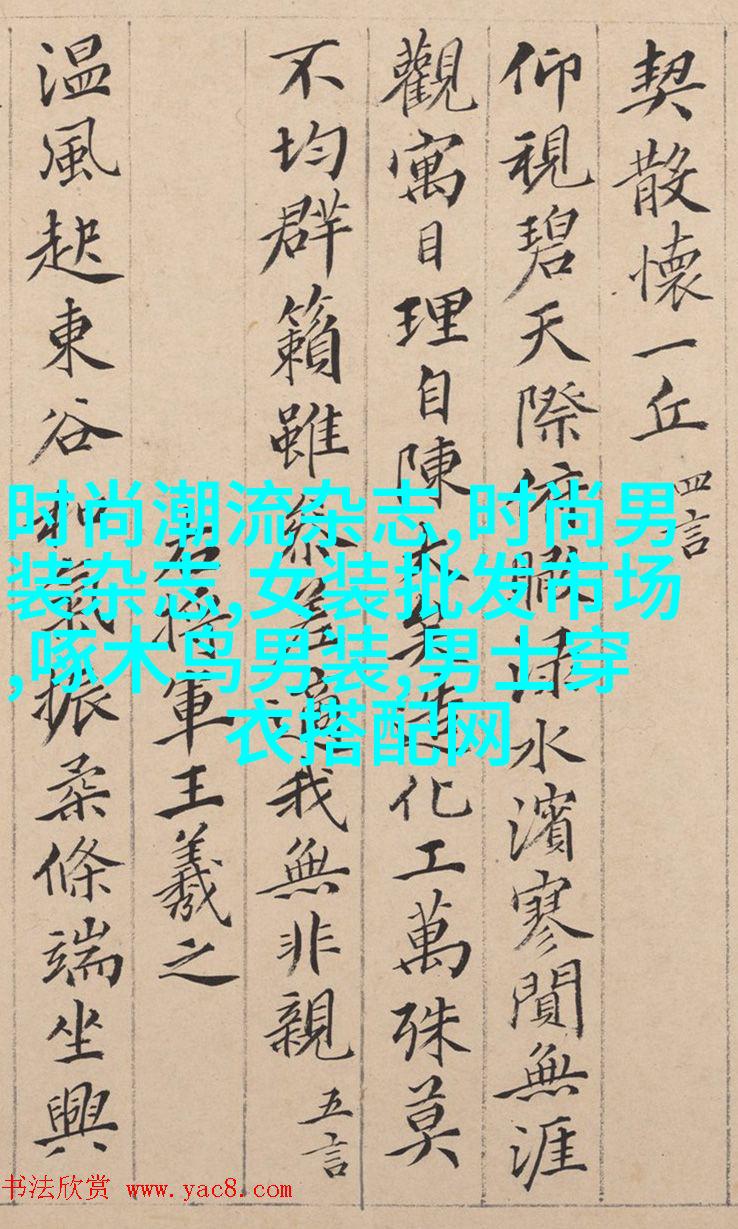 契散懷一丘 四言
仰視碧天際俯瞰渌水濱寥閴無涯
觀寓目理自陳大矣造化工萬殊莫
不均群籟雖參差適我無非親 五言
右將軍王羲之
温風起東谷和氣振柔條端坐興
时尚潮流杂志,时尚男
装杂志,女装批发市场
,啄木鸟男装,男士穿
衣搭配网
书法欣赏 www.yac8.com